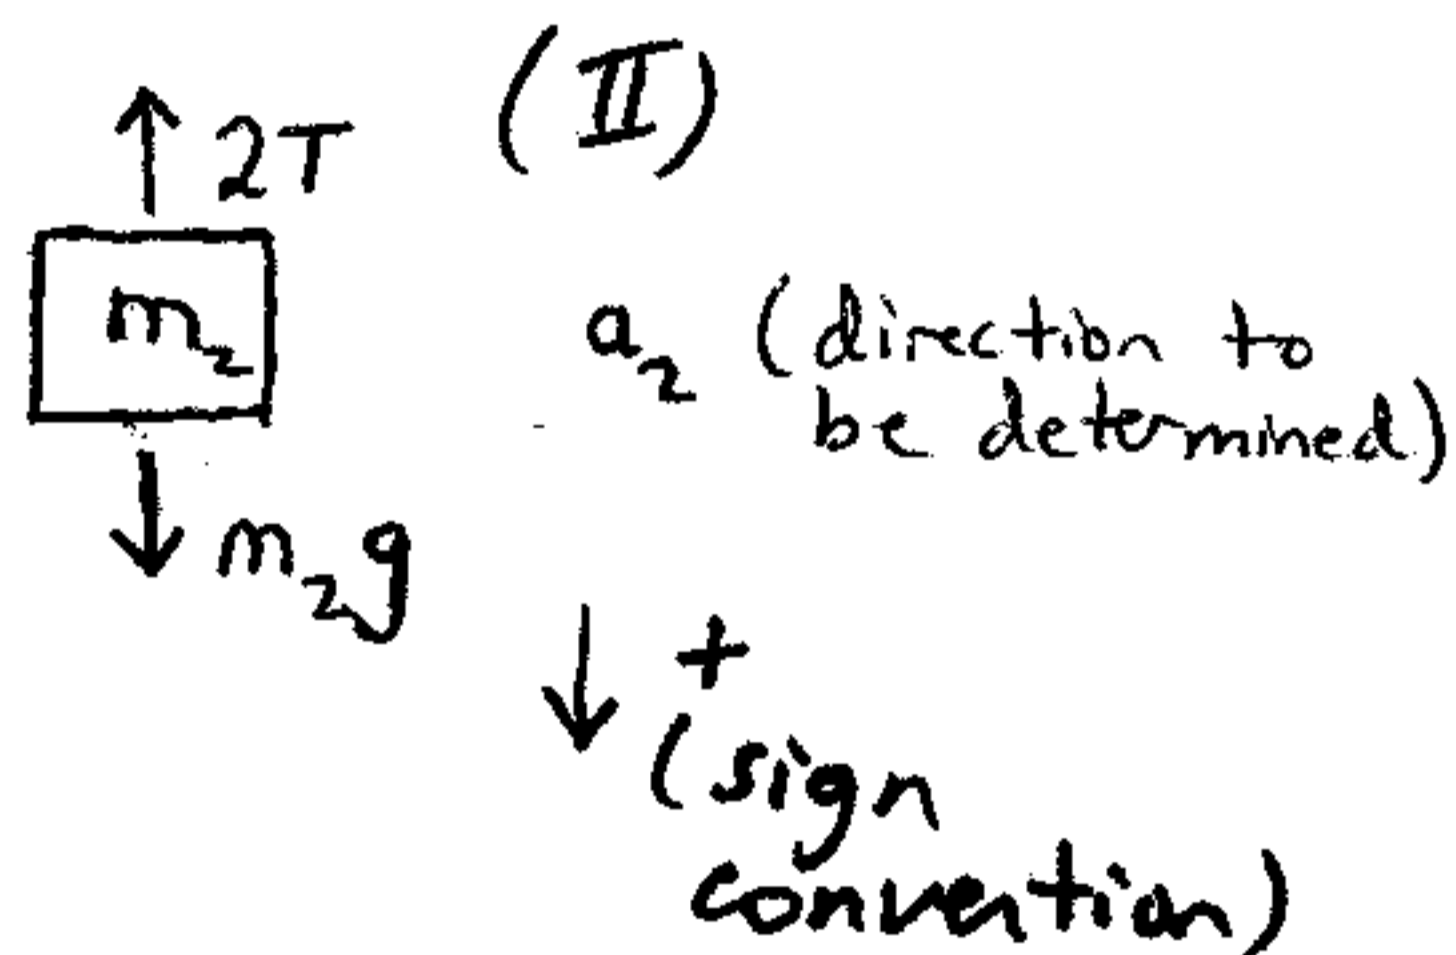 (II)
2T
m₂
a₂ (direction to
be determined)
m₂g
+
(sign
convention)